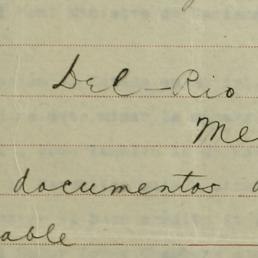 Del-Rio
Me
documentos
able